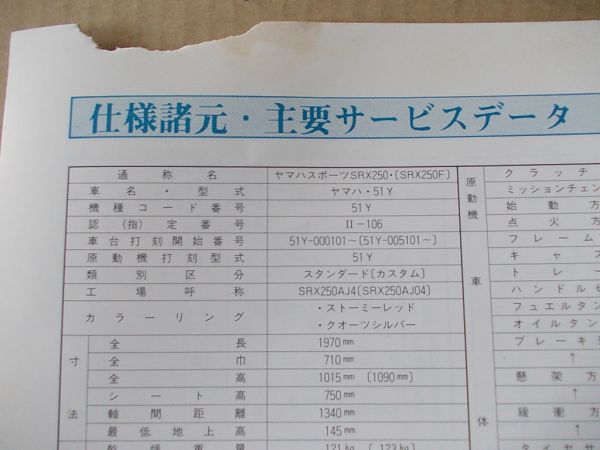 仕様諸元・主要サービスデータ
通称名 ヤマハスポーツSRX250・〔SRX250F〕
車名・型式 ヤマハ・51Y
機種コード番号 51Y
認(指)定番号 II-106
車台打刻開始番号 51Y-000101～〔51Y-005101～〕
原動機打刻型式 51Y
類別区分 スタンダード〔カスタム〕
工場呼称 SRX250AJ4〔SRX250AJ04〕
カラーリング ・ストーミーレッド
・クオーツシルバー
寸法
全長 1970mm
全巾 710mm
全高 1015mm〔1090mm〕
シート高 750mm
軸間距離 1340mm
最低地上高 145mm
乾燥重量 121kg〔123kg〕
原動機
クラッチ
ミッションチェン
始動方
点火方
車体
フレーム
キャス
トレー
ハンドルセ
フュエルタン
オイルタン
ブレーキ
↑
懸架方
↑
緩衝方
↑
タイヤサ